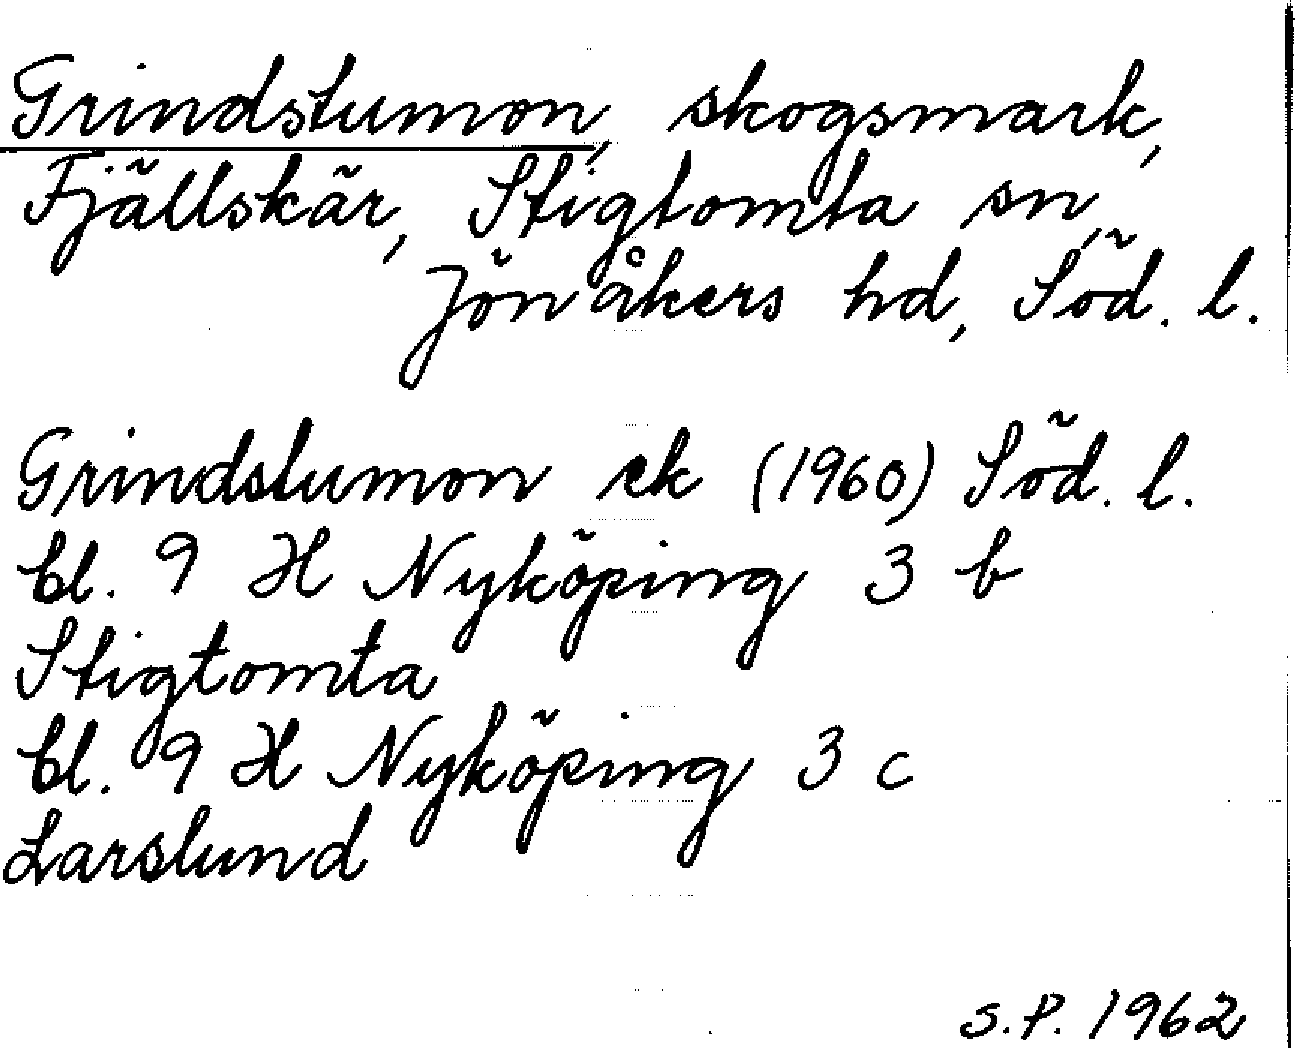 Grindstumon, skogsmark,
Fjällskär, Stigtomta sn,
Jönåkers hd, Söd. l.
Grindstumon ek (1960) Söd. l.
bl. 9 H Nyköping 3 b
Stigtomta
bl. 9 H Nyköping 3 c
Larslund
S.P. 1962